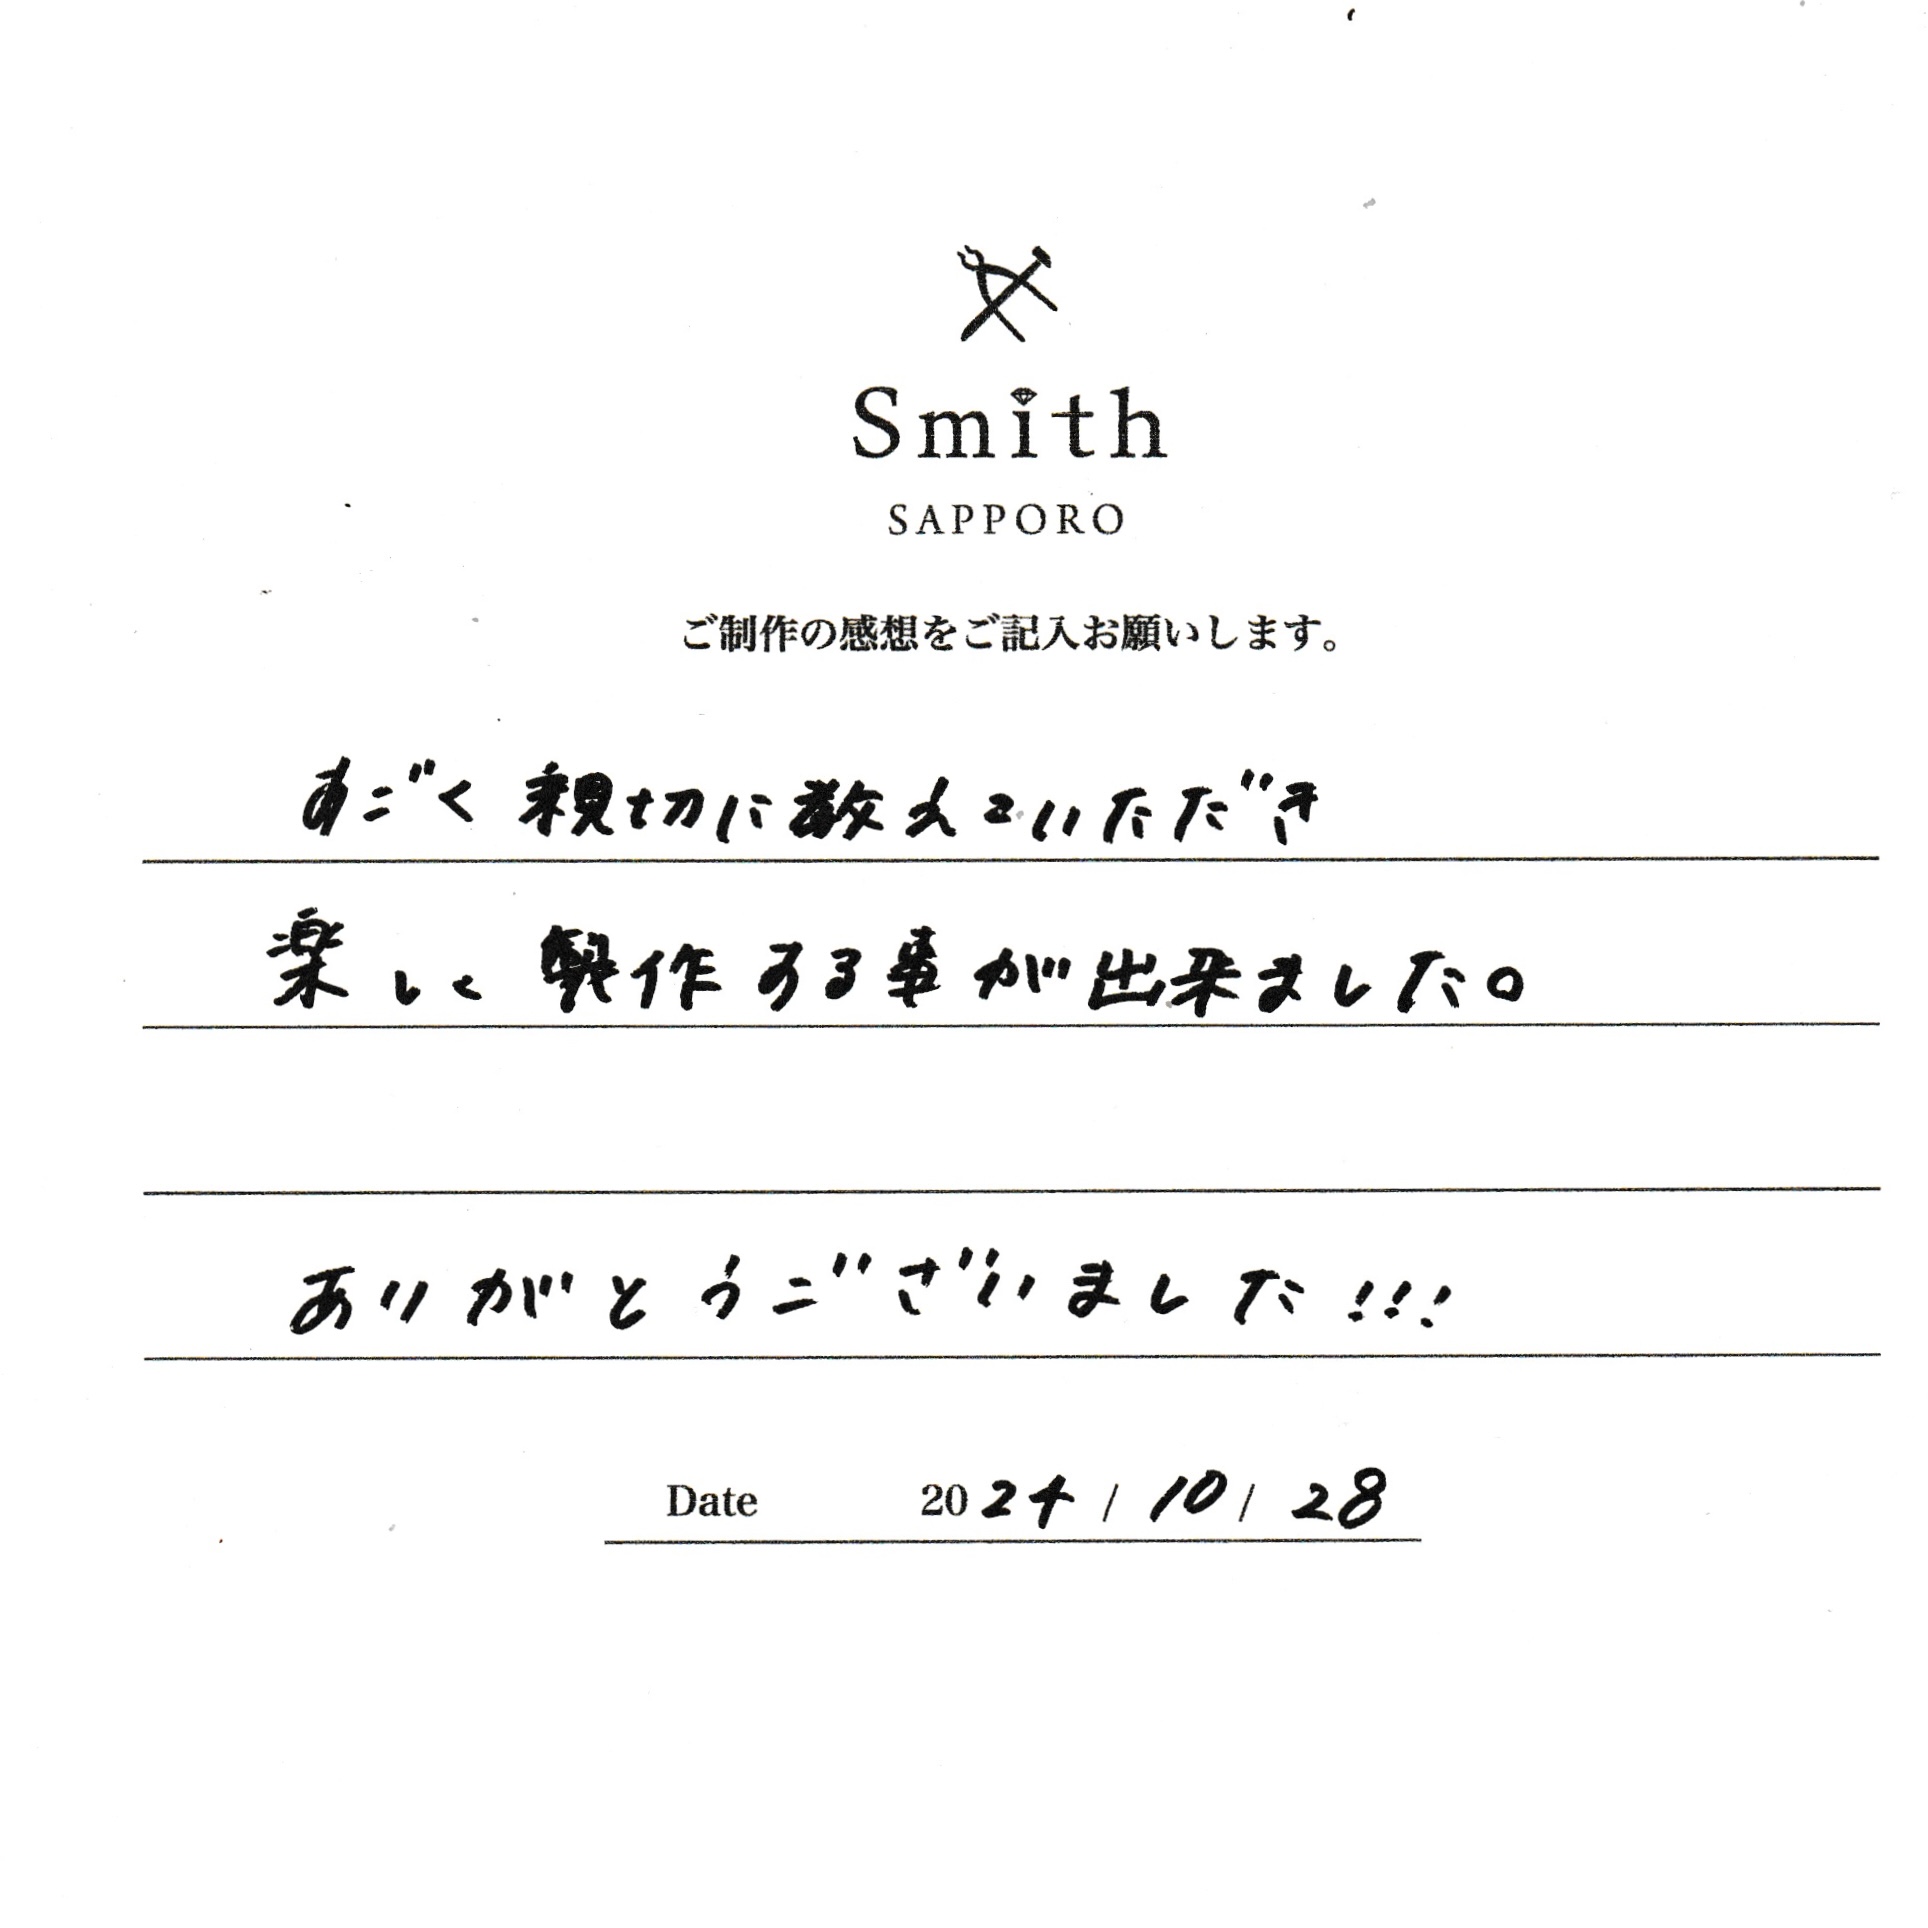 Smith
SAPPORO
ご制作の感想をご記入お願いします。
すごく親切に教えていただき
楽しく製作する事が出来ました。
ありがとうございました!!!
Date 2024/10/28